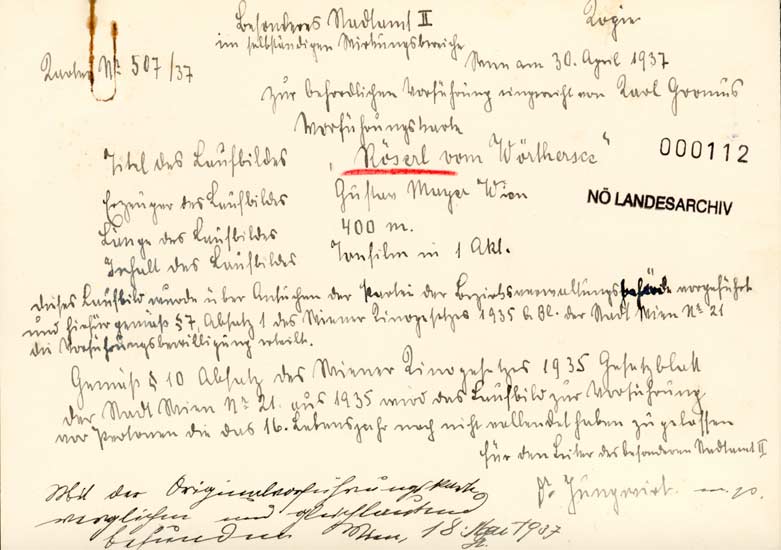 Besonderes Stadtamt II Kopie
im selbständigen Wirkungsbereiche
Wien am 30. April 1937
Kartei Nº 507/37
Zur behördlichen Vorführung eingereicht von Karl
Vorführungskarte
Titel des Laufbildes „Röserl vom Wörthersee“
000112
Erzeuger des Laufbildes Gustav Mayer Wien
NÖ LANDESARCHIV
Länge des Laufbildes 400 m.
Inhalt des Laufbildes Tonfilm in 1 Akt.
Dieses Laufbild wurde über Ansuchen der Partei der Bezirksverwaltungsbehörde vorgeführt
und hiefür gemäß § 7, Absatz 1 des Wiener Kinogesetzes 1935 G. Bl. der Stadt Wien Nº 21
die Vorführungsbewilligung erteilt.
Gemäß § 10 Absatz des Wiener Kinogesetzes 1935 Gesetzblatt
der Stadt Wien Nº 21. aus 1935 wird das Laufbild zur Vorführung
vor Personen die das 16. Lebensjahr noch nicht vollendet haben zugelassen
für den Leiter des besonderen Stadtamt II
Dr. Jungwirt. m. p.
Mit der Originalvorführungskarte
verglichen und gleichlautend
befunden Wien, 18. Mai 1937